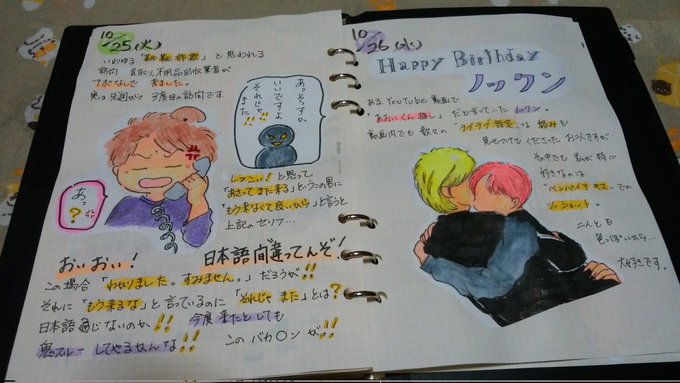 10/25(火)
いわゆる「押し買い詐欺」と思われる
訪問 買取り、不用品回収業者が
すおなしで 来ました。
実は先週から 3度目の訪問です。
あっそうすか
いいですよ
それじゃ
また!!
あっ?
しつこい!と思って
「あさって また来る」というこの男に
「もう来なくて良いから」と言うと
上記のセリフ…
おいおい! 日本語間違ってんぞ!
この場合「わかりました。すみません。」だろうが!!
それに「もう来るな」と言っているのに「それじゃ また」とは?
日本語通じないのか!! 今度来たとしても
鬼スルーしてやるかんな!! このバカ〇ンが!!
10/26(水)
Happy Birthday
ノックン
ある YouTube 動画で
「あおいくん推し」だと言っていたノックン。
動画内でも 数々の
"イチャイチャ" な 絡みを
見せつけてくださったお二人ですが
その中でも 私が 特に
好きなのは
"ペンパイナやス" での
2ショット♡
二人とも
色っぽいから…
大好きです。